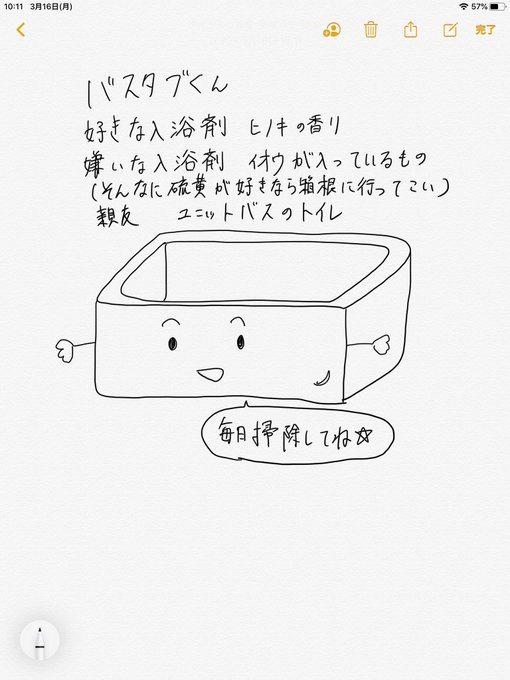 10:11 3月16日(月)
57%
完了
バスタブくん
好きな入浴剤 ヒノキの香り
嫌いな入浴剤 イオウが入っているもの
(そんなに硫黄が好きなら箱根に行ってこい)
親友 ユニットバスのトイレ
毎日掃除してね☆